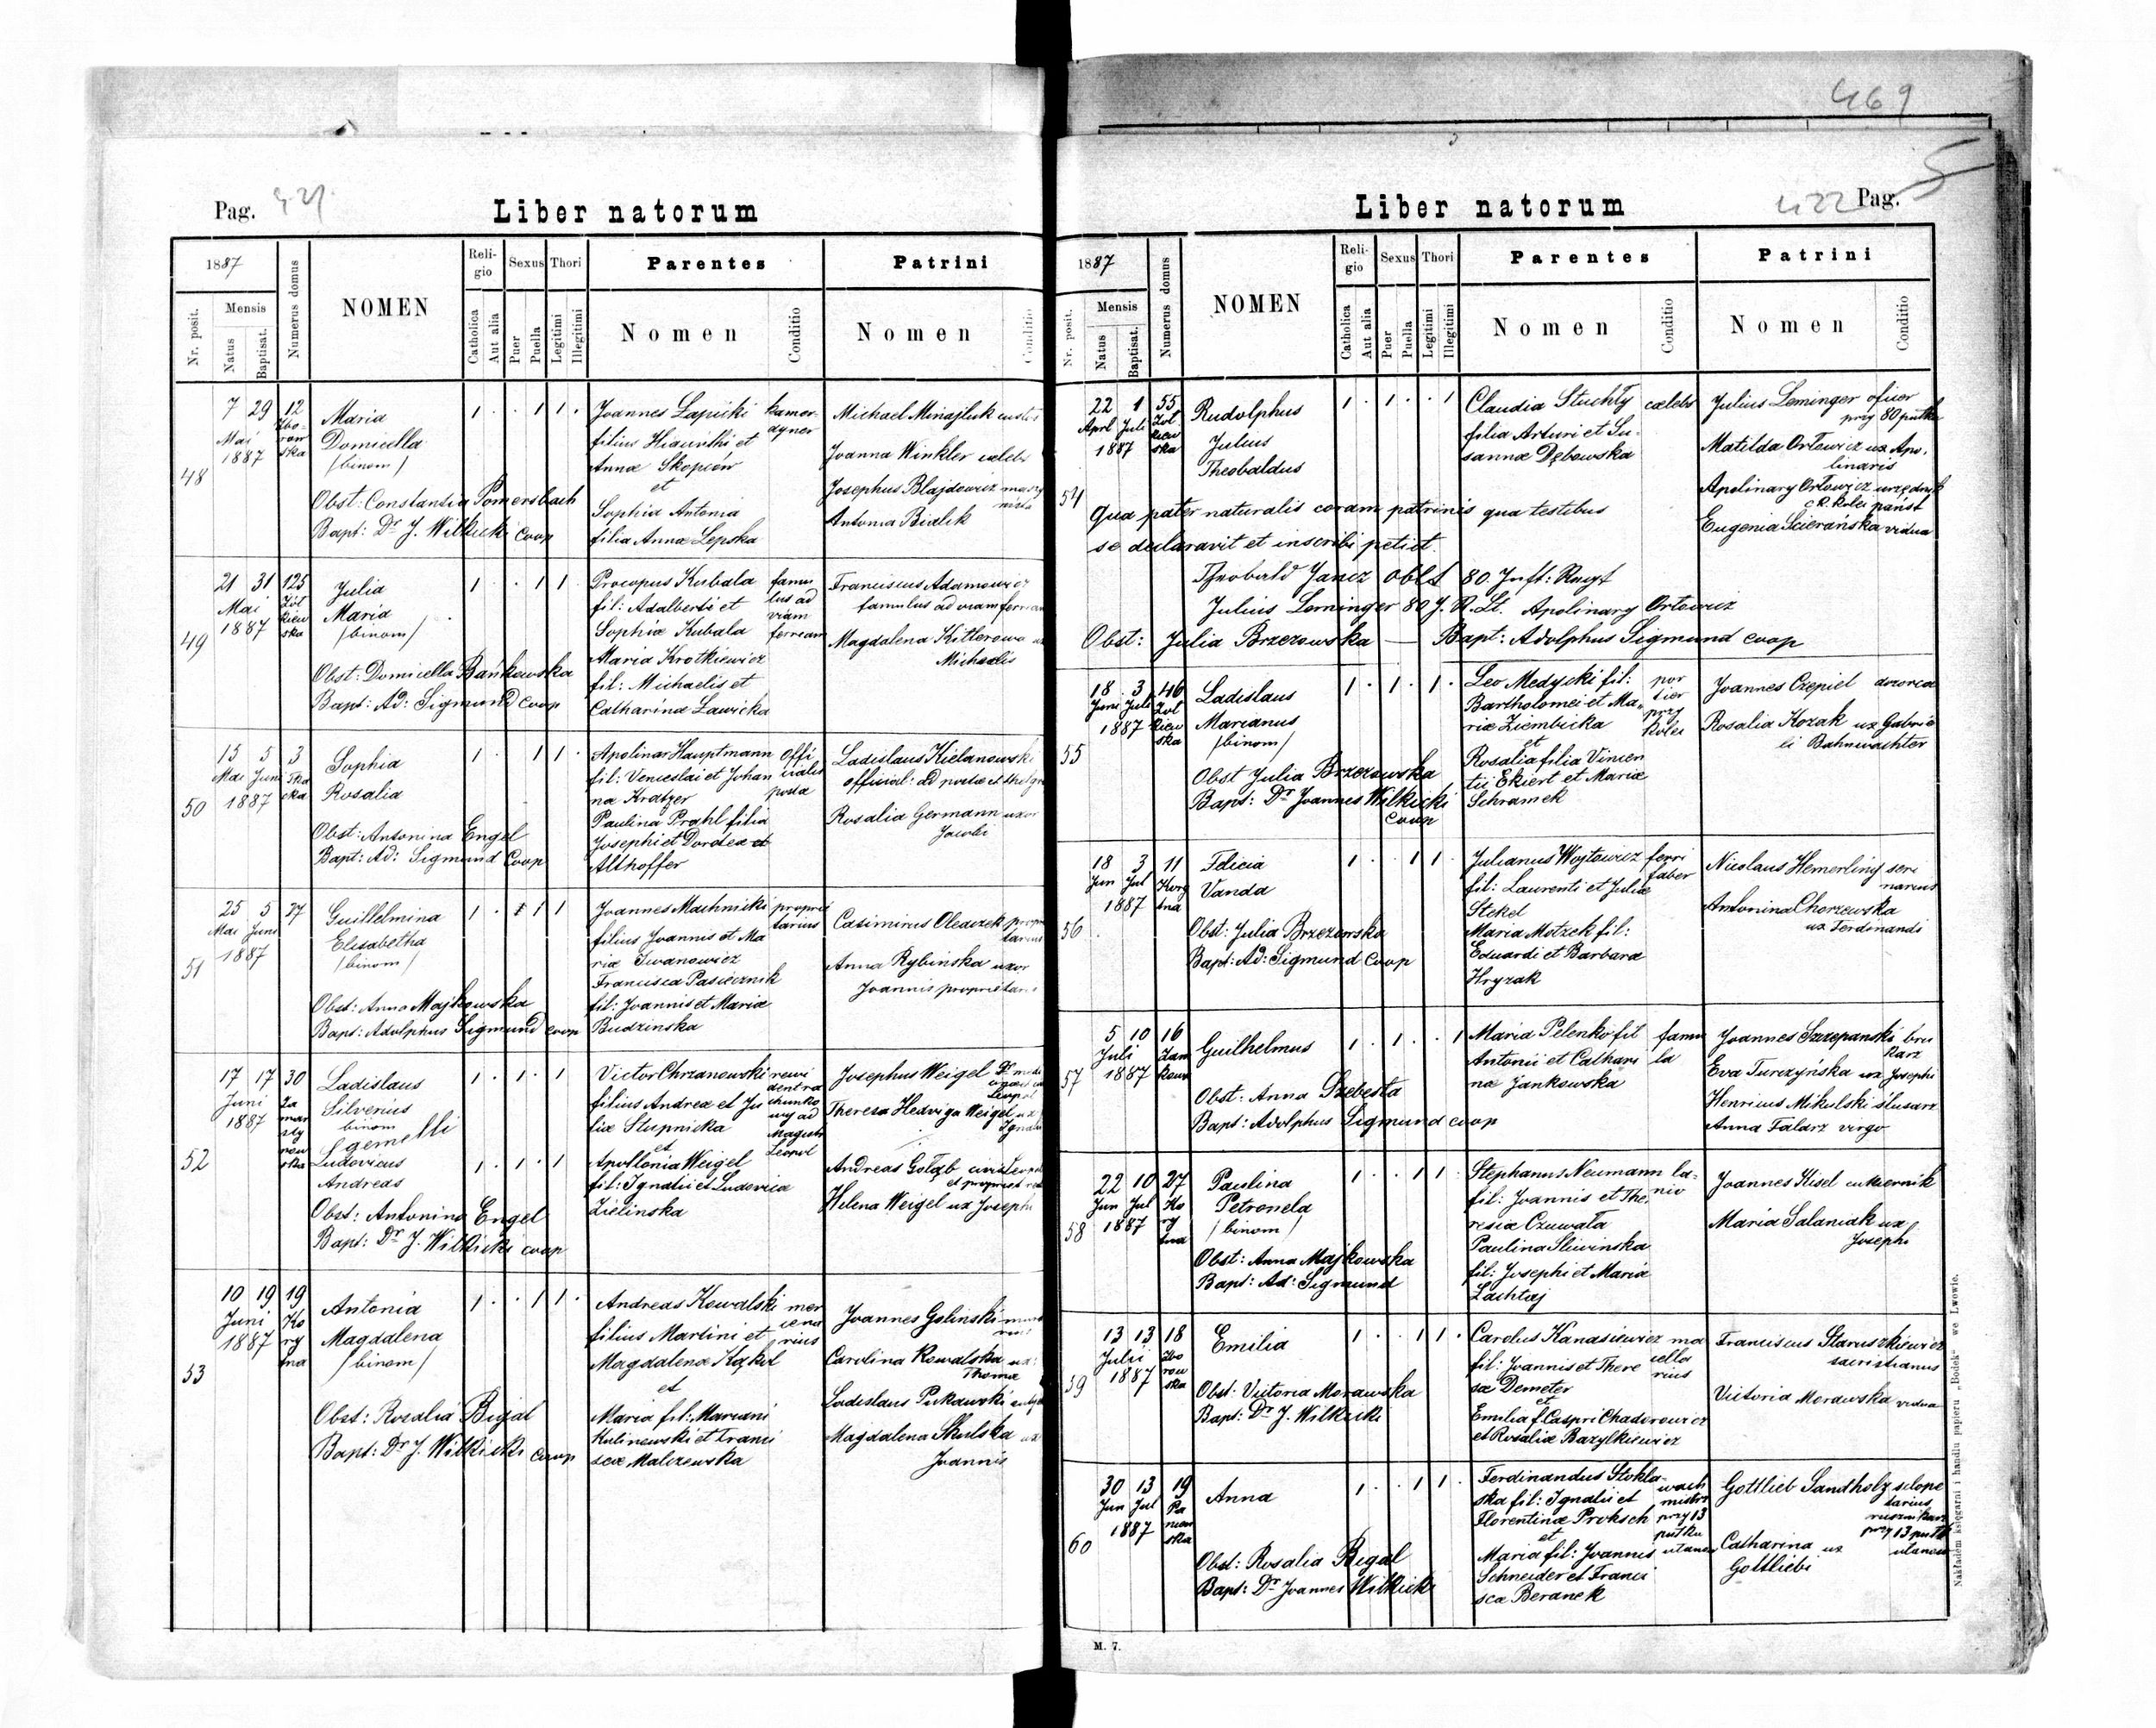 469
Pag. 421.
Liber natorum
1887
Nr. posit.
Mensis
Natus
Baptisat.
Numerus domus
NOMEN
Religio
Catholica
Aut alia
Sexus
Puer
Puella
Thori
Legitimi
Illegitimi
Parentes
Nomen
Conditio
Patrini
Nomen
Conditio
48
7 29 12
Mai
1887
Maria
Domicella
/binom/
Obst: Constantia Pomersbach
Bapt: Dr J. Wilkicki coop
Joannes Lapicki
filius Hiacinthi et
Annæ Skopców
et
Sophia Antonia
filia Annæ Lepska
kamer-
dyner
Michael Minajluk
Joanna Winkler celebs
Josephus Blajdewicz
Antonia Bialik
49
21 31 125
Mai
1887
Żół
kiew
ska
Julia
Maria
/binom/
Obst: Domicella Bańkowska
Bapt: Ad: Sigmund coop
Procopus Kubala
fil: Adalberti et
Sophiæ Kubala
Maria Krotkiewicz
fil: Michaelis et
Catharinæ Ławicka
famu
lus ad
viam
ferream
Franciscus Adamowicz
famulus ad viam
Magdalena Kitlerowa
Michaelis
50
15 5 3
Mai Juni
1887
Sophia
Rosalia
Obst: Antonina Engel
Bapt: Ad: Sigmund Coop
Apolinar Hauptmann
fil: Venceslai et Johan
næ Kratzer
Paulina Prahl filia
Josephi et Dorotea et
Althoffer
offi
cialis
posta
Ladislaus Kielanowski
official: ad
Rosalia Germann uxor
Jacobi
51
25 5 27
Mai Juni
1887
Guilhelmina
Elisabetha
/binom/
Obst: Anna Majkowska
Bapt: Adolphus Sigmund coop
Joannes Machnicki
filius Joannis et Ma
riæ Iwanowicz
Francisca Pasiecznik
fil: Joannis et Mariæ
Budzinska
proprie
tarius
Casimirus Oleaczek
Anna Rybinska uxor
Joannis
52
17 17 30
Juni
1887
Ladislaus
Silverius
binom
gemelli
Ludovicus
Andreas
Obst: Antonina Engel
Bapt: Dr J. Wilkicki coop
Victor Chrzanowski
filius Andrea et Ju
liæ Stupnicka
et
Apollonia Weigel
fil: Ignatii et Ludovica
Zielinska
rewi
dent ra
chunko
wy ad
Magistr
Leopol
Josephus Weigel
Theresa Hedviga Weigel ux
Andreas Gołąb
Helena Weigel ux Joseph
53
10 19 19
Juni
1887
Ko
ry
tna
Antonia
Magdalena
/binom/
Obst: Rozalia Bigal
Bapt: Dr J. Wilkicki coop
Andreas Kowalski
filius Martini et
Magdalenæ Kąkol
et
Maria fil: Mariani
Kulinewski et Franci
scæ Malczewska
mer
cena
rius
Joannes Golinski
Carolina Kowalska
Thomæ
Ladislaus
Magdalena Skulska
Joannis
422 Pag. 5
Liber natorum
1887
Nr. posit.
Mensis
Natus
Baptisat.
Numerus domus
NOMEN
Religio
Catholica
Aut alia
Sexus
Puer
Puella
Thori
Legitimi
Illegitimi
Parentes
Nomen
Conditio
Patrini
Nomen
Conditio
54
22 1 55
Aprl Juli
1887
Żół
kiew
ska
Rudolphus
Julius
Theobaldus
Claudia Stuchły
filia Arturi et Su-
sannæ Dębowska
cælebs
Julius Leminger oficer
przy 80 pułku
Matilda Ortowicz ux Apo-
linaris
Apolinary Ortowicz urzędnik
c R. kolei państ
Eugenia Scierańska vidua
Qua pater naturalis coram patrinis qua testibus
se declaravit et inscribi petiit.
Theobald Jancz Oblt 80. Inft: Regt
Julius Leminger 80 J. R. Lt. Apolinary Ortowicz
Obst: Julia Brzezowska — Bapt: Adolphus Sigmund coop
55
18 3 46
Juni Juli
1887
Żół
kiew
ska
Ladislaus
Marianus
/binom/
Obst Julia Brzezowska
Bapt: Dr Joannes Wilkicki
Coop
Leo Medycki fil:
Bartholomei et Ma
riæ Ziembicka
et
Rosalia filia Vincen
tii Ekiert et Mariæ
Schramek
por
tier
przy
kolei
Joannes Czepiel dozorca
Rosalia Kozak ux Gabrie
li Bahnwächter
56
18 3 11
Jun Jul
1887
Felicia
Vanda
Obst: Julia Brzezowska
Bapt: Ad: Sigmund Coop
Julianus Wojtowicz
fil: Laurenti et Juliæ
Stekel
Maria Motzek fil:
Eduardi et Barbara
Hryzak
ferri
faber
Nicolaus Hemerling
Antonina Chorzewska
ux Ferdinandi
57
5 10 16
Juli
1887
Guilhelmus
Obst: Anna Szebesta
Bapt: Adolphus Sigmund coop
Maria Pelenko fil
Antonii et Cathari
næ Jankowska
famu
la
Joannes Szczepanski bru
karz
Eva Turzyńska ux Josephi
Henricus Mikulski ślusarz
Anna Falarz virgo
58
22 10 27
Jun Jul
1887
Ko
ry
tna
Paulina
Petronela
/binom/
Obst: Anna Majkowska
Bapt: Ad: Sigmund
Stephanus Neumann
fil: Joannis et The
resiæ Czuwała
Paulina Sliwinska
fil: Josephi et Mariæ
Lachtaj
la-
nio
Joannes Kisel cukiernik
Maria Salaniak ux
Josephi
59
13 13 18
Julii
1887
Emilia
Obst: Victoria Morawska
Bapt: Dr J. Wilkicki
Carolus Kanasiewicz
fil: Joannis et There
sæ Demeter
et
Emilia f. Caspri Chaderowicz
et Rosaliæ Bazylkiewicz
ma
cella
rius
Franciscus Staruszkiewicz
sacristianus
Victoria Morawska vidua
60
30 13 19
Jun Jul
1887
Anna
Obst: Rosalia Bigal
Bapt: Dr Joannes Wilkicki
Ferdinandus Stokla-
ska fil: Ignatii et
Florentinæ Proksch
et
Maria fil: Joannis
Schneider et Franci
scæ Beranek
wach
mistrz
przy 13
pułku
ułanów
Gottlieb Sandholz sclope
tarius
rusznikarz
przy 13 pułk
ułanów
Catharina ux
Gottliebi
M. 7.
Nakładem księgarni i handlu papieru „Bodek“ we Lwowie.